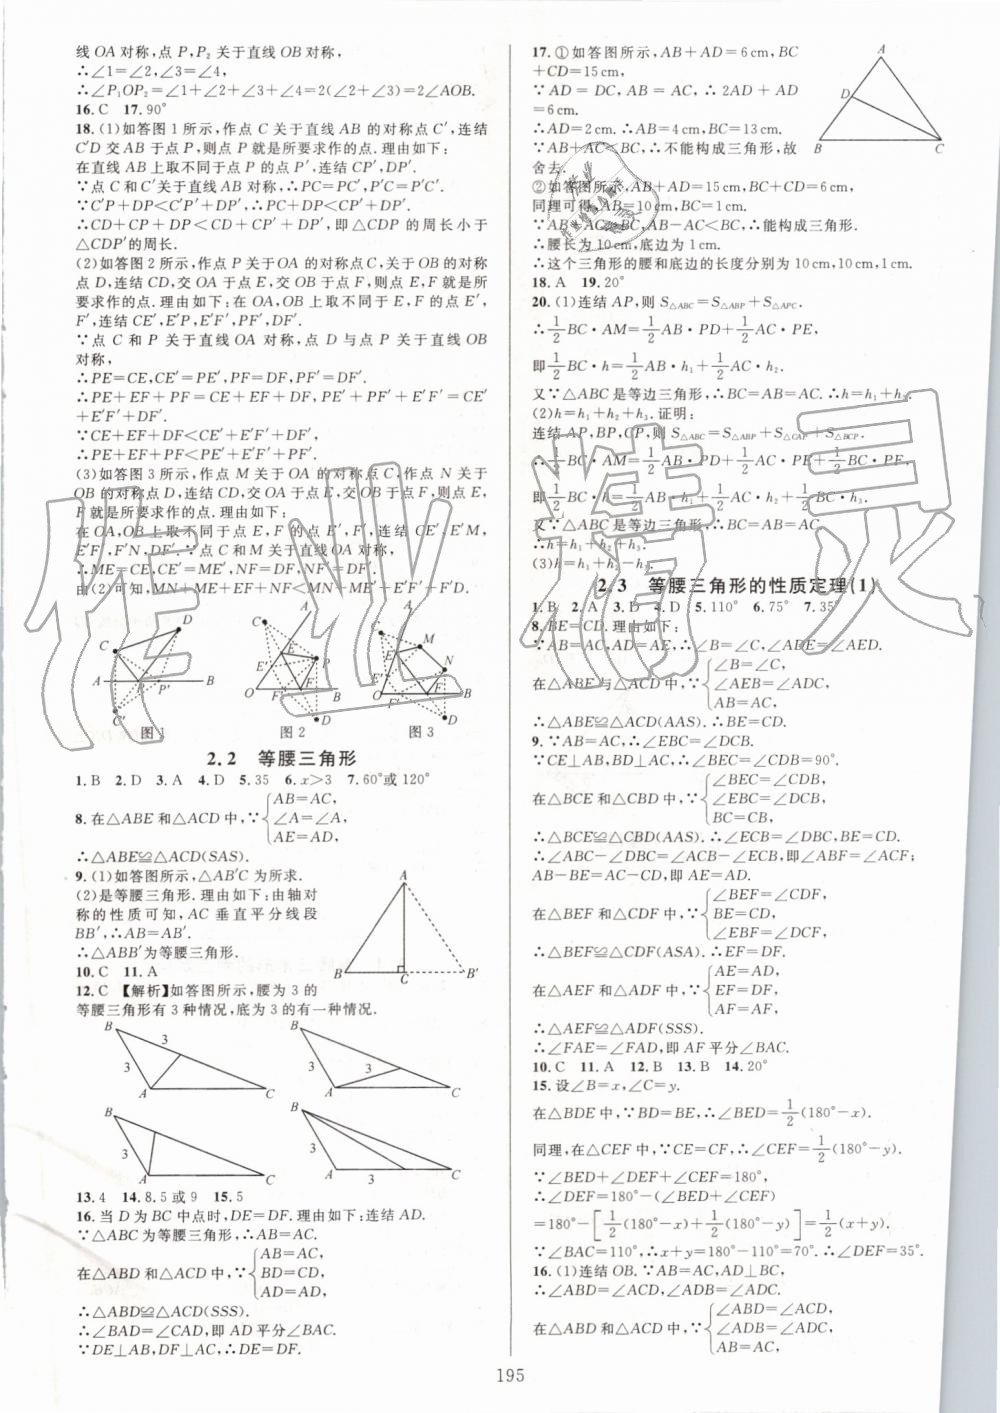 线OA对称,点P,P₂关于直线OB对称,
∴∠1=∠2,∠3=∠4,
∴∠P₁OP₂=∠1+∠2+∠3+∠4=2(∠2+∠3)=2∠AOB.
16.C 17.90°
18.(1)如答图1所示,作点C关于直线AB的对称点C′,连结
C′D交AB于点P,则点P就是所要求作的点.理由如下:
在直线AB上取不同于点P的点P′,连结CP′,DP′.
∵点C和C′关于直线AB对称,∴PC=PC′,P′C=P′C′.
∵C′P+DP<C′P′+DP′,∴PC+DP<CP′+DP′.
∴CD+CP+DP<CD+CP′+DP′,即△CDP的周长小于
△CDP′的周长.
(2)如答图2所示,作点P关于OA的对称点C,关于OB的对称
点D,连结CD,交OA于点E,交OB于点F,则点E,F就是所
要求作的点.理由如下:在OA,OB上取不同于点E,F的点E′,
F′,连结CE′,E′P,E′F′,PF′,DF′.
∵点C和P关于直线OA对称,点D与点P关于直线OB
对称,
∴PE=CE,CE′=PE′,PF=DF,PF′=DF′.
∴PE+EF+PF=CE+EF+DF,PE′+PF′+E′F′=CE′
+E′F′+DF′.
∵CE+EF+DF<CE′+E′F′+DF′,
∴PE+EF+PF<PE′+E′F′+PF′.
(3)如答图3所示,作点M关于OA的对称点C,作点N关于
OB的对称点D,连结CD,交OA于点E,交OB于点F,则点E,
F就是所要求作的点.理由如下:
在OA,OB上取不同于点E,F的点E′,F′,连结CE′,E′M,
E′F′,F′N,DF′.∵点C和M关于直线OA对称,
∴ME=CE,CE′=ME′,NF=DF,NF′=DF′.
由(2)可知,MN+ME+EF+NF<MN+ME′+E′F′+NF′.
图1 图2 图3
2.2 等腰三角形
1.B 2.D 3.A 4.D 5.35 6.x>3 7.60°或120°
8.在△ABE和△ACD中,∵{AB=AC,
∠A=∠A,
AE=AD,
∴△ABE≌△ACD(SAS).
9.(1)如答图所示,△AB′C为所求.
(2)是等腰三角形.理由如下:由轴对
称的性质可知,AC垂直平分线段
BB′,∴AB=AB′.
∴△ABB′为等腰三角形.
10.C 11.A
12.C 【解析】如答图所示,腰为3的
等腰三角形有3种情况,底为3的有一种情况.
13.4 14.8.5或9 15.5
16.当D为BC中点时,DE=DF.理由如下:连结AD.
∵△ABC为等腰三角形,∴AB=AC.
在△ABD和△ACD中,∵{AB=AC,
BD=CD,
AD=AD,
∴△ABD≌△ACD(SSS).
∴∠BAD=∠CAD,即AD平分∠BAC.
∵DE⊥AB,DF⊥AC,∴DE=DF.
17.①如答图所示,AB+AD=6cm,BC
+CD=15cm,
∵AD=DC,AB=AC,∴2AD+AD
=6cm.
∴AD=2cm.∴AB=4cm,BC=13cm.
∵AB+AC<BC,∴不能构成三角形,故
舍去.
②如答图所示,AB+AD=15cm,BC+CD=6cm,
同理可得,AB=10cm,BC=1cm.
∵AB+AC>BC,AB-AC<BC,∴能构成三角形.
∴腰长为10cm,底边为1cm.
∴这个三角形的腰和底边的长度分别为10cm,10cm,1cm.
18.A 19.20°
20.(1)连结AP,则S△ABC=S△ABP+S△APC.
∴1/2BC·AM=1/2AB·PD+1/2AC·PE,
即1/2BC·h=1/2AB·h₁+1/2AC·h₂.
又∵△ABC是等边三角形,∴BC=AB=AC.∴h=h₁+h₂.
(2)h=h₁+h₂+h₃.证明:
连结AP,BP,CP,则S△ABC=S△ABP+S△CAP+S△BCP.
∴1/2BC·AM=1/2AB·PD+1/2AC·PE+1/2BC·PF,
即1/2BC·h=1/2AB·h₁+1/2AC·h₂+1/2BC·h₃.
又∵△ABC是等边三角形,∴BC=AB=AC.
∴h=h₁+h₂+h₃.
(3)h=h₁+h₂-h₃.
2.3 等腰三角形的性质定理(1)
1.B 2.A 3.D 4.D 5.110° 6.75° 7.35
8.BE=CD.理由如下:
∵AB=AC,AD=AE,∴∠B=∠C,∠ADE=∠AED.
在△ABE与△ACD中,∵{∠B=∠C,
∠AEB=∠ADC,
AB=AC,
∴△ABE≌△ACD(AAS).∴BE=CD.
9.∵AB=AC,∴∠EBC=∠DCB.
∵CE⊥AB,BD⊥AC,∴∠BEC=∠CDB=90°.
在△BCE和△CBD中,∵{∠BEC=∠CDB,
∠EBC=∠DCB,
BC=CB,
∴△BCE≌△CBD(AAS).∴∠ECB=∠DBC,BE=CD.
∴∠ABC-∠DBC=∠ACB-∠ECB,即∠ABF=∠ACF;
AB-BE=AC-CD,即AE=AD.
在△BEF和△CDF中,∵{∠BEF=∠CDF,
BE=CD,
∠EBF=∠DCF,
∴△BEF≌△CDF(ASA).∴EF=DF.
在△AEF和△ADF中,∵{AE=AD,
EF=DF,
AF=AF,
∴△AEF≌△ADF(SSS).
∴∠FAE=∠FAD,即AF平分∠BAC.
10.C 11.A 12.B 13.B 14.20°
15.设∠B=x,∠C=y.
在△BDE中,∵BD=BE,∴∠BED=1/2(180°-x).
同理,在△CEF中,∵CE=CF,∴∠CEF=1/2(180°-y).
∵∠BED+∠DEF+∠CEF=180°,
∴∠DEF=180°-(∠BED+∠CEF)
=180°-[1/2(180°-x)+1/2(180°-y)]=1/2(x+y).
∵∠BAC=110°,∴x+y=180°-110°=70°.∴∠DEF=35°.
16.(1)连结OB.∵AB=AC,AD⊥BC,
∴∠ABD=∠ACD,∠ADB=∠ADC.
在△ABD和△ACD中,∵{∠ABD=∠ACD,
∠ADB=∠ADC,
AB=AC,
195
作业精灵